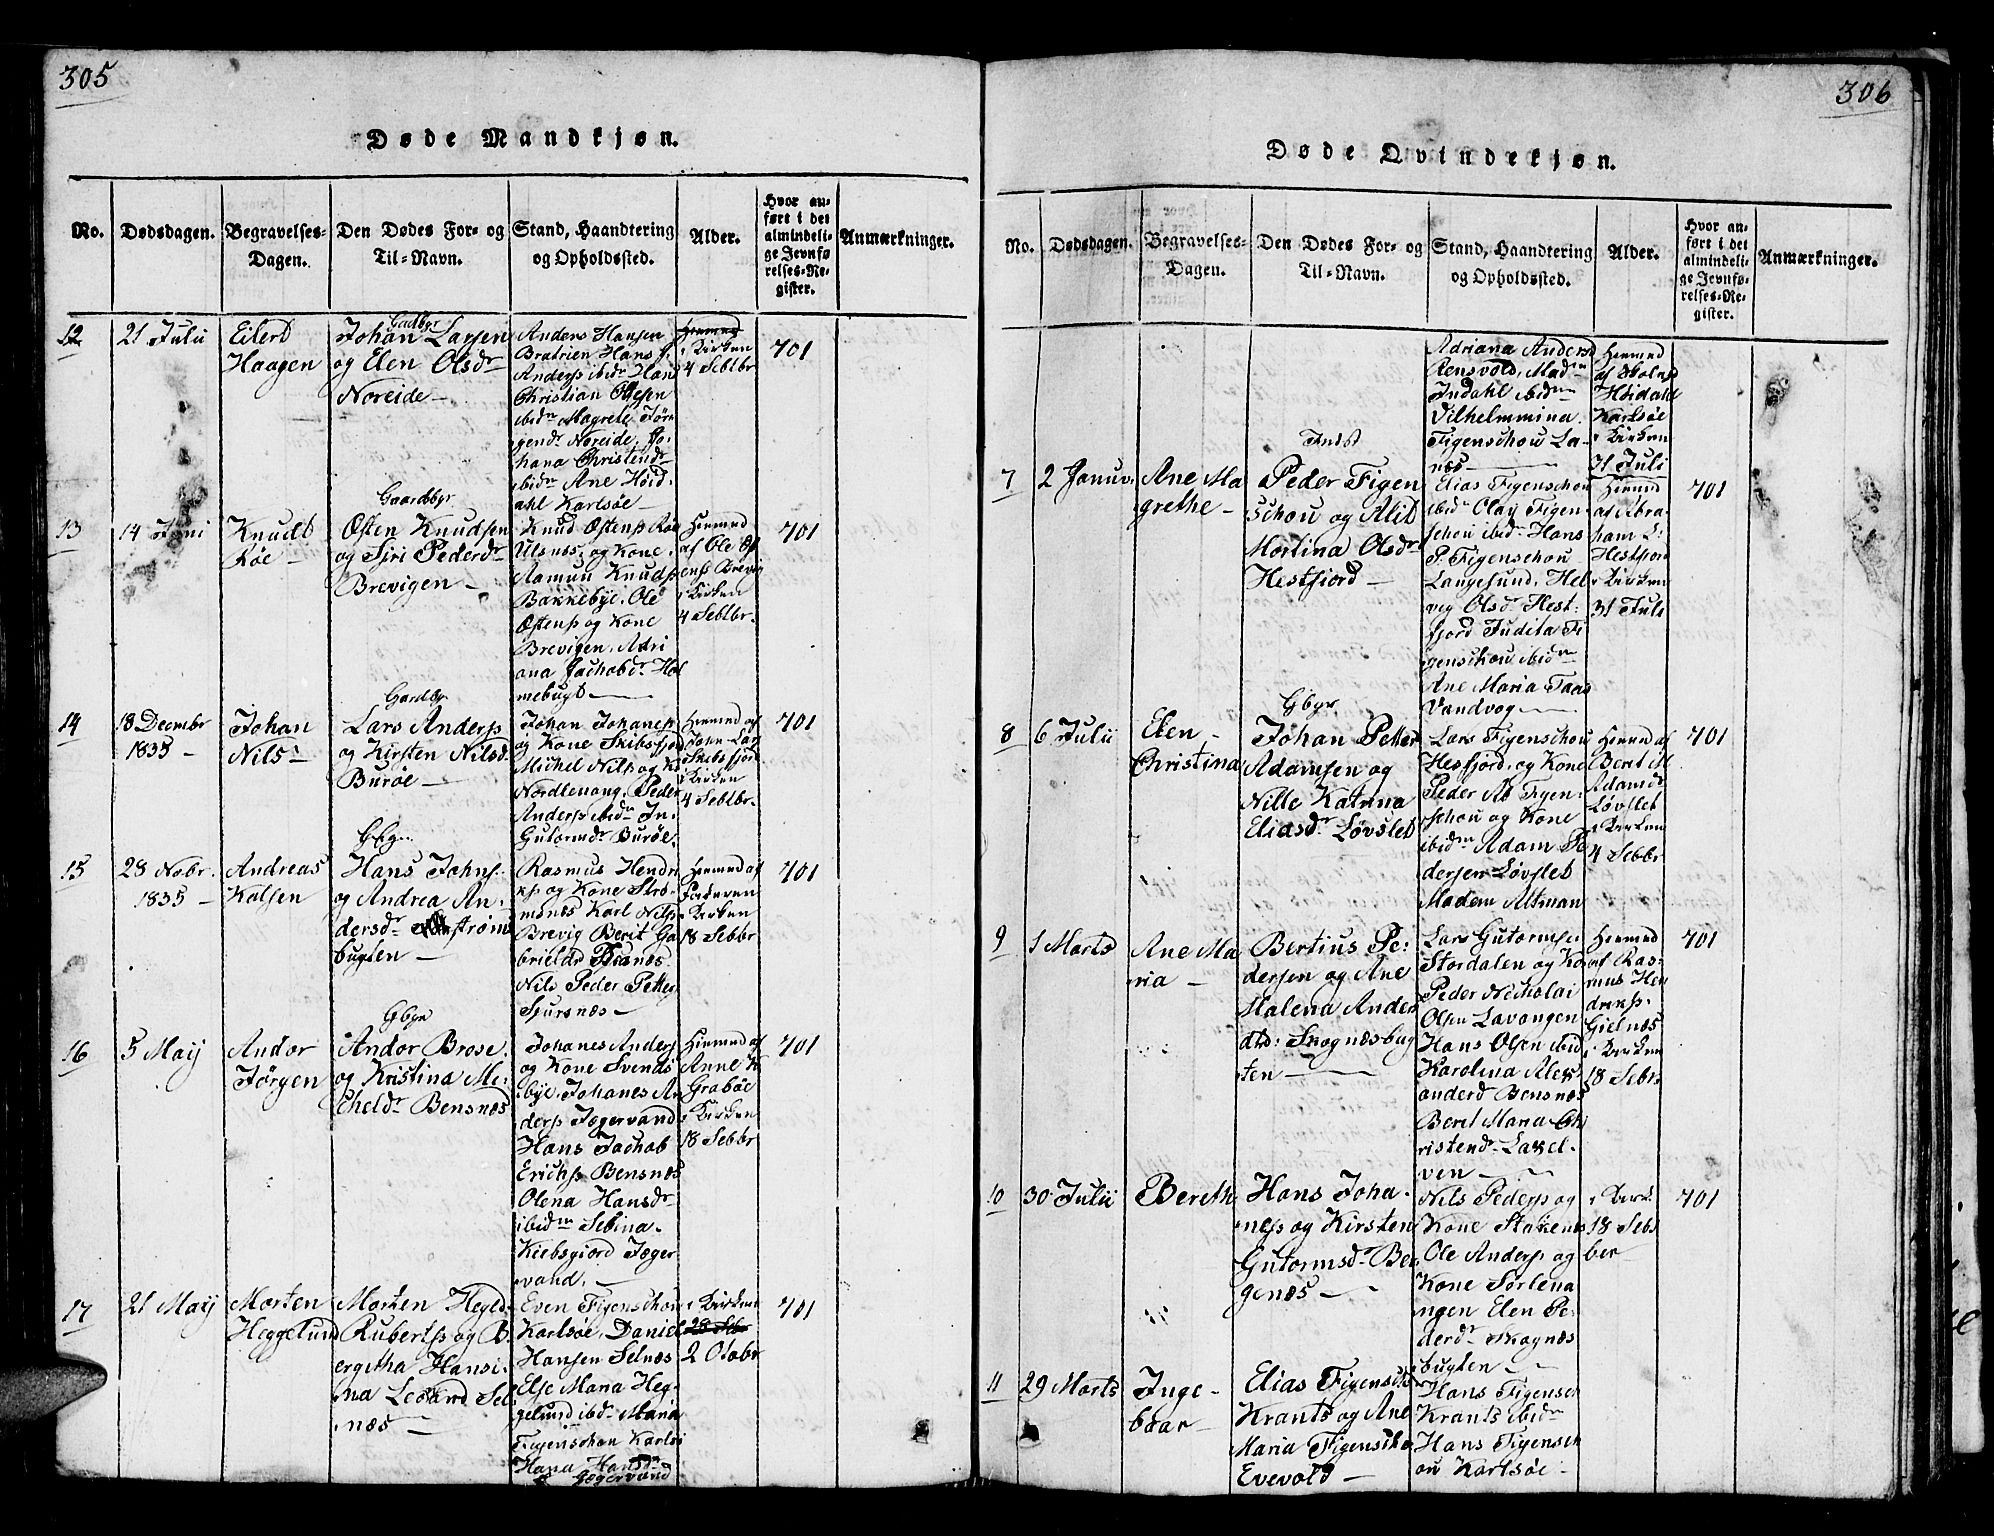 305
Døde Mandkjøn.
No.
Dødsdagen.
Begravelses-
Dagen.
Den Dødes For- og
Til-Navn.
Stand, Haandtering
og Opholdssted.
Alder.
Hvor an-
ført i det
almindeli-
ge Jevnfø-
relses-Re-
gister.
Anmærkninger.
12
21 Julii
Eilerd
Haagen
Gadbyr
Johan Larsen
og Elen Olsdr
Noreide
Anders Hansen
Bratrien Hans
Andersp ibidn Hans
Christian Olesen
ibidn Magrete Jør
gendr Noreide, Jo-
hana Christendr
ibidn Ane Høid
ahl Karlsøe
Hiemmed
i Kirken
4 Sebtbr
701
13
14 Juni
Knudt
Røe
Gaardbyr
Østen Knudsen
og Siri Pedersdr
Brevigen
Knud Østensp Røe
Ulsnæs, og Kone,
Aamun Knudsp
Bakkebye, Ole
Østensp og Kone
Brevigen, Adri
ana Jachobdr Hol
mebugt
Hiemmed
af Ole Øs
tensp Brevig
i Kirken
4 Sebtbr.
701
14
18 Decmbr
1835
Johan
Nils
Gardbyr
Lars Andersp
og Kirsten Nilsd.
Burøe
Johan Johanesp
og Kone Skibsfjord
Michel Nilsp og Ko
Nordlenang, Peder
Andersp ibidn In
Gutormdr Burøe.
Hiemmed af
John Lars
Skibsfjord
i Kirken
4 Sebtbr.
701
15
28 Nobr.
1835
Andreas
Kalsen
Gbyr
Hans Johns.
og Andrea An-
dersdr strøms
bugten
Rasmus Hendri
ksp og Kone Strø-
msnæs Karl Nilsp
Brevig Berit Ga
brieldr Þranes
Nils Peder Petters
Spursnæs
Hiemmed af
Faderen
i Kirken
18 Sebbr
701
16
5 Maij
Andor
Jørgen
Gbyr
Andor Brose.
og Kristina Mi-
cheldr Bensnæs
Johanes Andersp
og Kone Svends
bye, Johanes An
dersp Jægervand
Hans Jachob
Erichsp Bensnæs
Olena Hansdr
ibidm Sebina
Kiebsgiord Jæger
vand.
Hiemmed af
Anne K
Grabøe
i Kirken
18 Sebbr
701
17
21 Maij
Morten
Heggelund
Morten Hegld.
Rubertsp og B.
ergitha Hansi-
na Leoard Sel
næs
Even Figenschou
Karlsøe, Daniel
Hansen Selnæs
Else Maria Heg-
gelund ibidr Maria
Figenschou Karlsø
Hana Hansdr
Jægervand
i Kirken
28 Sebr
2 Otobr
701
306
Døde Qvindekjøn.
No.
Dødsdagen.
Begravelses-
Dagen.
Den Dødes For- og
Til-Navn.
Stand, Haandtering
og Opholdssted.
Alder.
Hvor an-
ført i det
almindeli-
ge Jevnfø-
relses-Re-
gister.
Anmærkninger.
7
2 Januv.
Ane Ma
grethe
Inst
Peder Figen
schou og Alit
Martina Olsdr
Hestfiord
Adriana Anders
Rensvold, Madm
Indahl ibidm
Vilhelmmina
Figenschou La-
næs
Elias Figenschou
ibidr Olay Figen-
schou ibidr Hans
P. Figenschou
Langesund, Hel
vig Olsdr Hest:
fjord Judita Fi
genschou ibidm
Ane Maria Taas
Vandvog
Hiemmed
af
Høidahl
Karlsøe
i Kirken
31 Juli
Hiemmd
af Abra
ham L:
Hestfjord
i Kirken
31 Juli
701
8
6 Julii
Elen
Christina
Gbyr
Johan Petter
Adamsen og
Nille Katrina
Eliasdr Løvslet
Lars Figenschou
Hesfjord, og Kone
Peder Ab Figen-
schou og Kone
ibidm Adam Pe
dersen Løvslet
Madem Altman
Hiemmed af
Berit M
Adamdr
Løvslet
i Kirken
4 Sebbr
701
9
1 Marts
Ane Ma
ria
Bertius Pe:
dersen og Ane
Malena Ander
dtr: Skognæsbug
ten
Lars Gutormsen
Stordalen og Ko
Peder Nicholai
Olsen Lavangen
Hans Olsen ibid
Karolina Alex
anderd Bensnæs
Berit Maria Ch
ristendr Laxel-
ven
Hiemmed
af Ras-
mus Hen
driksp.
Gielnæs
i Kirken
18 Sebr.
701
10
30 Julii
Bereth
Hans Joha-
nesp og Kirsten
Gutormsdr Ber
genæs
Nils Pedersp og
Kone Stakenes
Ole Andersp og
Kone Sørlena
ngen Elen Pe-
derdr Skognæs
bugten
i Kirk:
18 Sebt
ber
701
11
29 Marts
Inge-
baar
Elias Figensch
Krants og Ane
Maria Figenscho
Evevold
Hans Figensch
Krants ibidm
Hans Figensch
ou Karlsøe